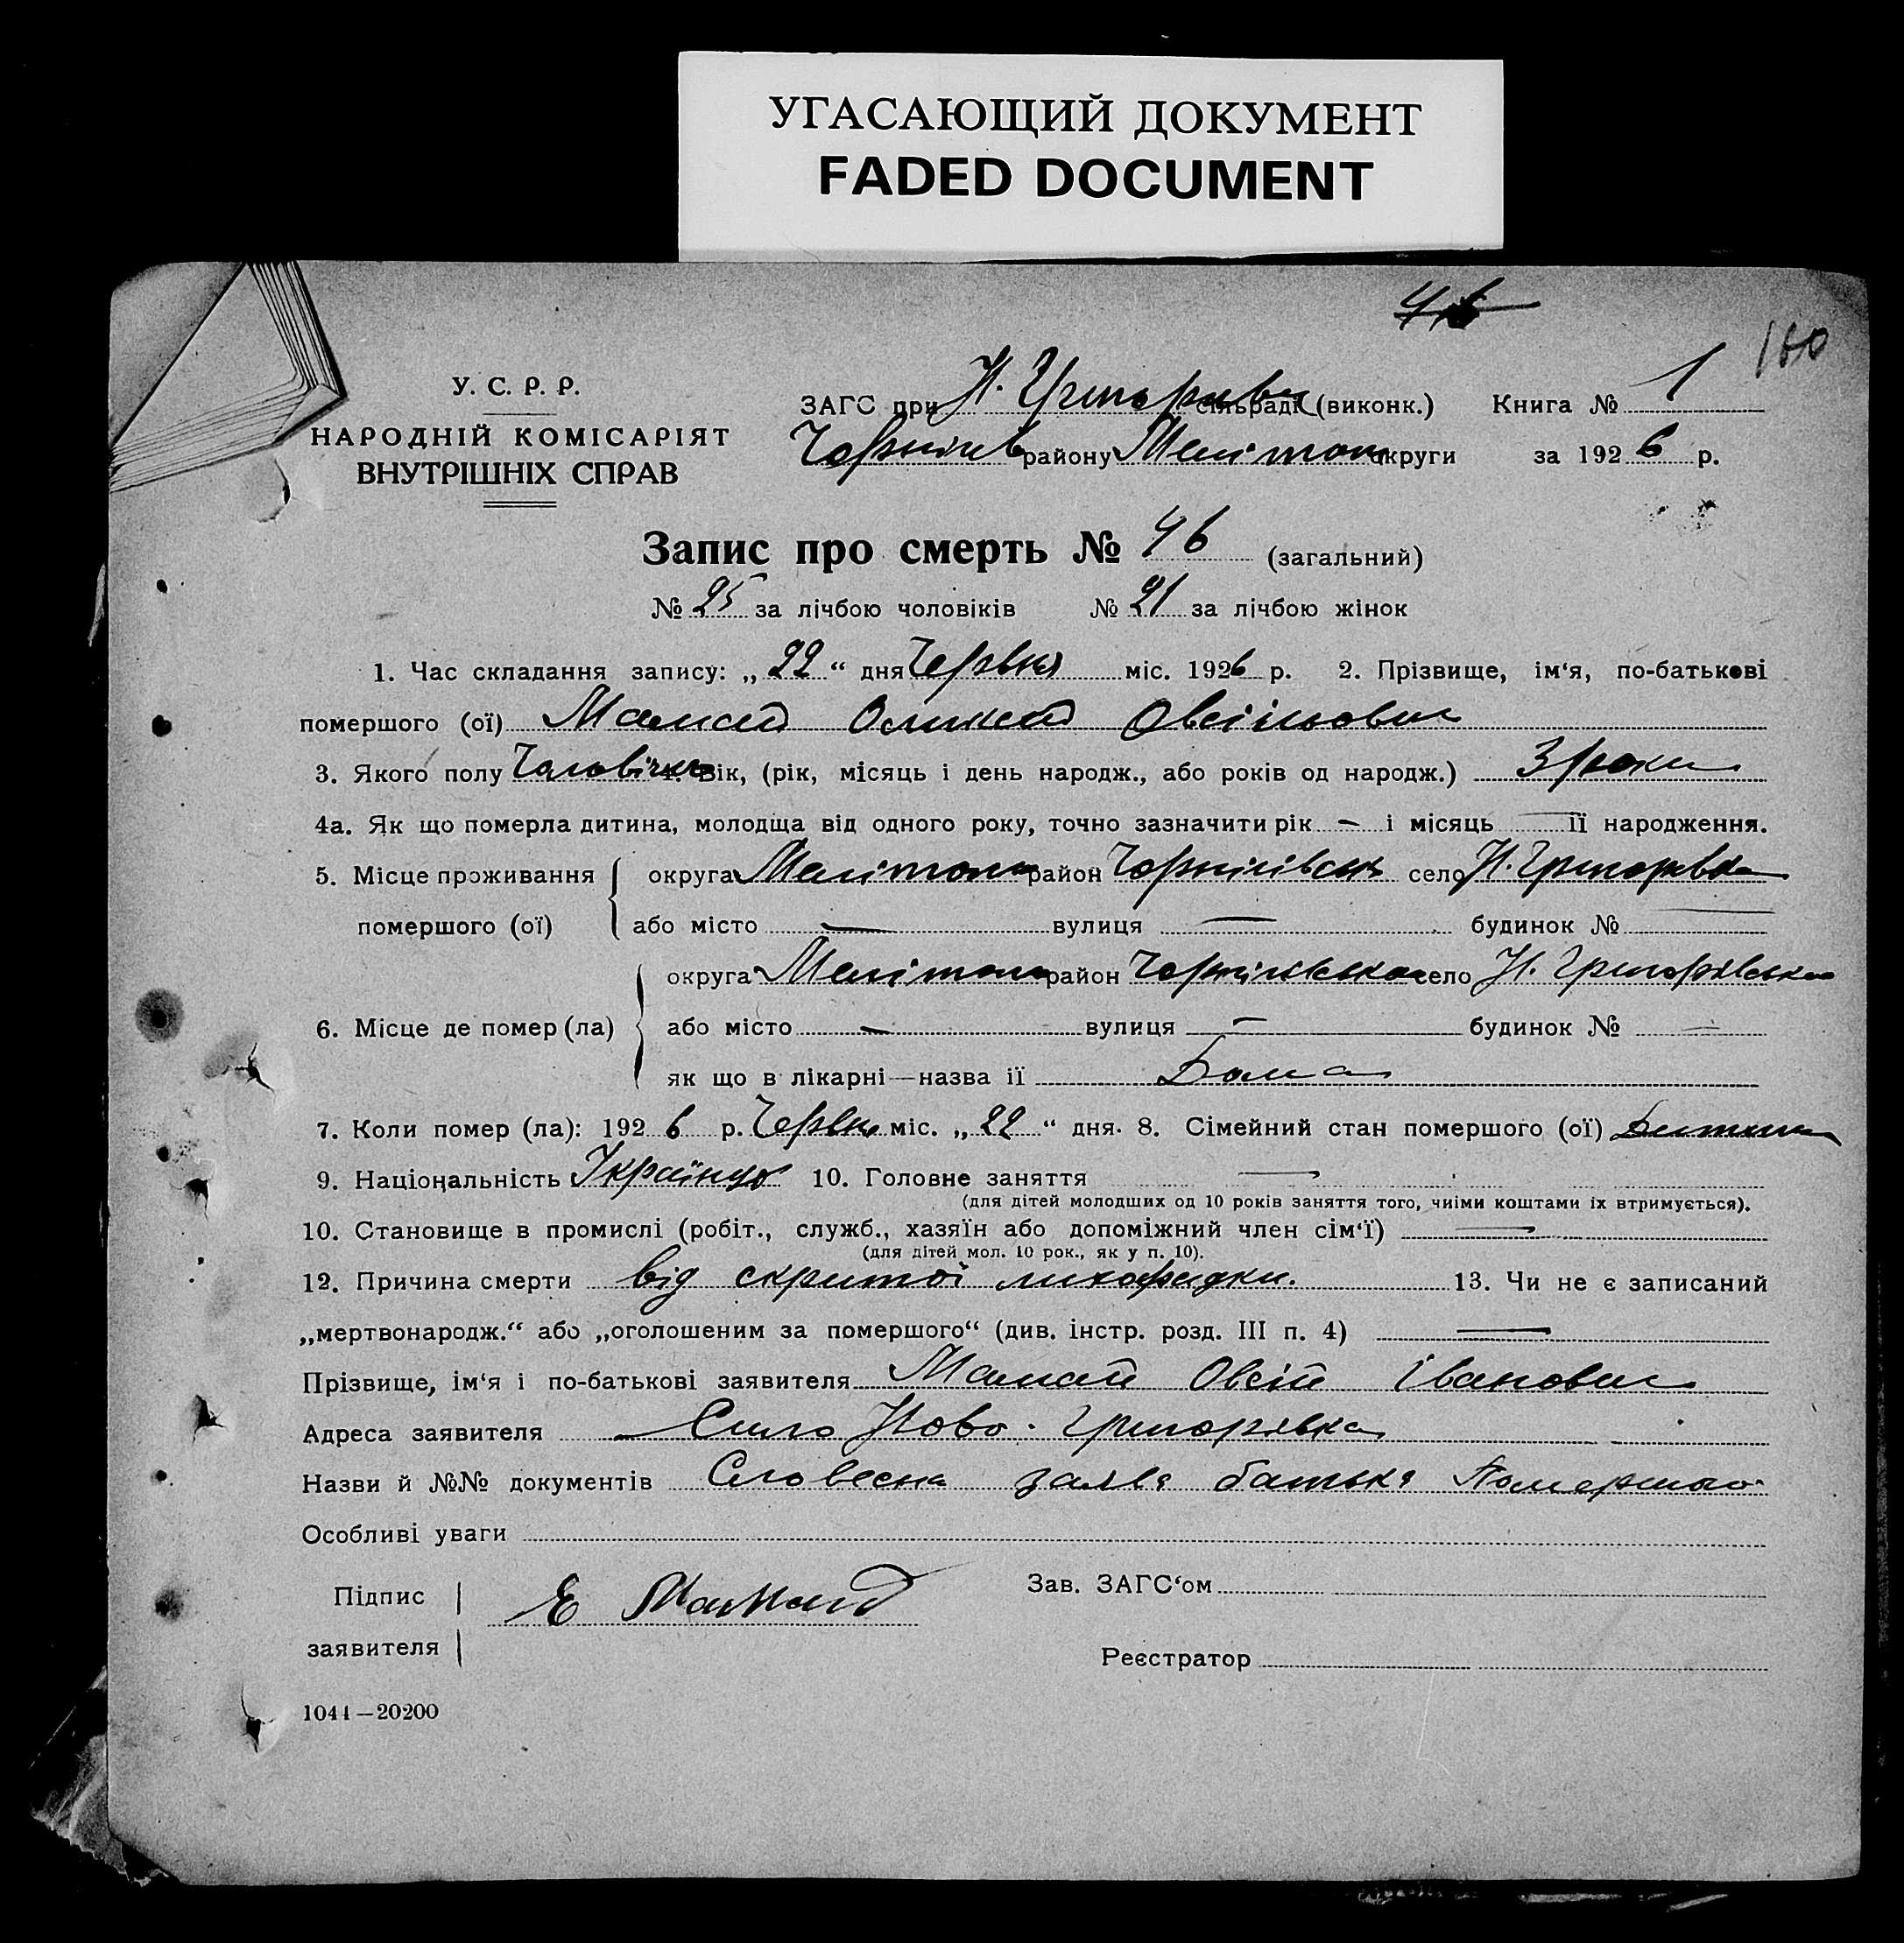 УГАСАЮЩИЙ ДОКУМЕНТ
FADED DOCUMENT
46
160
У. С. Р. Р.
НАРОДНІЙ КОМІСАРІЯТ
ВНУТРІШНІХ СПРАВ
ЗАГС при Н. Григорівц сільраді (виконк.) Книга № 1
Чернігів району Мелітоп округи за 1926 р.
Запис про смерть № 46 (загальний)
№ 25 за лічбою чоловіків № 21 за лічбою жінок
1. Час складання запису: „ 22 “ дня Червня міс. 1926 р. 2. Прізвище, ім‘я, по-батькові
помершого (ої) Мамай Олексій Овсійович
3. Якого полу Чоловічк 4. Вік, (рік, місяць і день народж., або років од народж.) 3 роки
4а. Як що померла дитина, молодща від одного року, точно зазначити рік — і місяць — її народження.
5. Місце проживання округа Мелітоп район Чернігівськ село Н. Григорівка
помершого (ої) або місто — вулиця — будинок № —
округа Мелітоп район Чернігівсько село Н. Григорівська
6. Місце де помер (ла) або місто — вулиця — будинок № —
як що в лікарні—назва її Дома
7. Коли помер (ла): 1926 р. Червн міс. „ 22 “ дня. 8. Сімейний стан помершого (ої) Дитина
9. Національність Українец 10. Головне заняття —
(для дітей молодших од 10 років заняття того, чиїми коштами їх втримується).
10. Становище в промислі (робіт., служб., хазяїн або допоміжний член сім‘ї) —
(для дітей мол. 10 рок., як у п. 10).
12. Причина смерти від скритої лихорадки. 13. Чи не є записаний
„мертвонародж.“ або „оголошеним за помершого“ (див. інстр. розд. III п. 4) —
Прізвище, ім‘я і по-батькові заявителя Мамай Овсій Іванович
Адреса заявителя Село Ново-Григорівка
Назви й №№ документів Словесна заява батька Помершого
Особливі уваги
Підпис заявителя Е Мамай
Зав. ЗАГС‘ом
Реєстратор
1044—20200